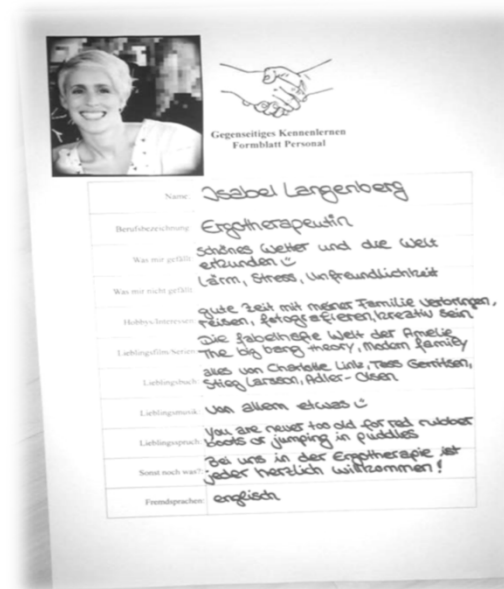 Gegenseitiges Kennenlernen
Formblatt Personal
Name: Isabel Langenberg
Berufsbezeichnung: Ergotherapeutin
Was mir gefällt: schönes Wetter und die Welt
erkunden ☺
Was mir nicht gefällt: Lärm, Stress, Unfreundlichkeit
Hobbys/Interessen: gute Zeit mit meiner Familie verbringen,
reisen, fotografieren, kreativ sein
Lieblingsfilm/Serien: Die fabelhafte Welt der Amelie
The big bang theory, Modern family
Lieblingsbuch: alles von Charlotte Link, Tess Gerritsen,
Stieg Larsson, Adler-Olsen
Lieblingsmusik: von allem etwas ☺
Lieblingsspruch: You are never too old for red rubber
boots or jumping in puddles
Sonst noch was?: Bei uns in der Ergotherapie ist
jeder herzlich willkommen!
Fremdsprachen: englisch